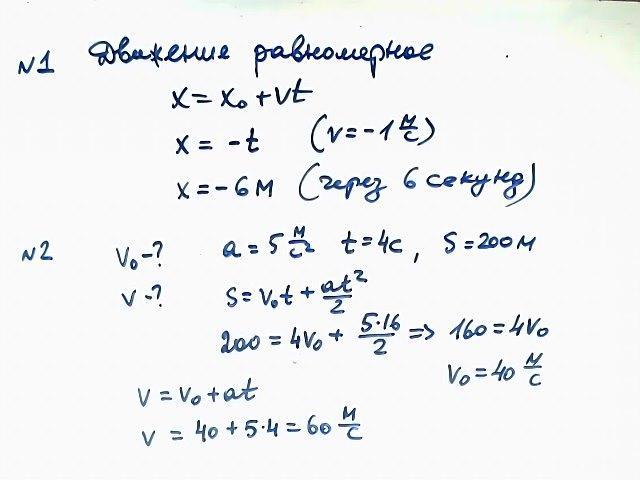 N1 Движение равномерное
x = x₀ + vt
x = -t (v = -1 м/с)
x = -6 м (через 6 секунд)
N2 v₀ - ? a = 5 м/с² t = 4с, S = 200 м
v - ? S = v₀t + at²/2
200 = 4v₀ + 5·16/2 => 160 = 4v₀
v₀ = 40 м/с
v = v₀ + at
v = 40 + 5·4 = 60 м/с